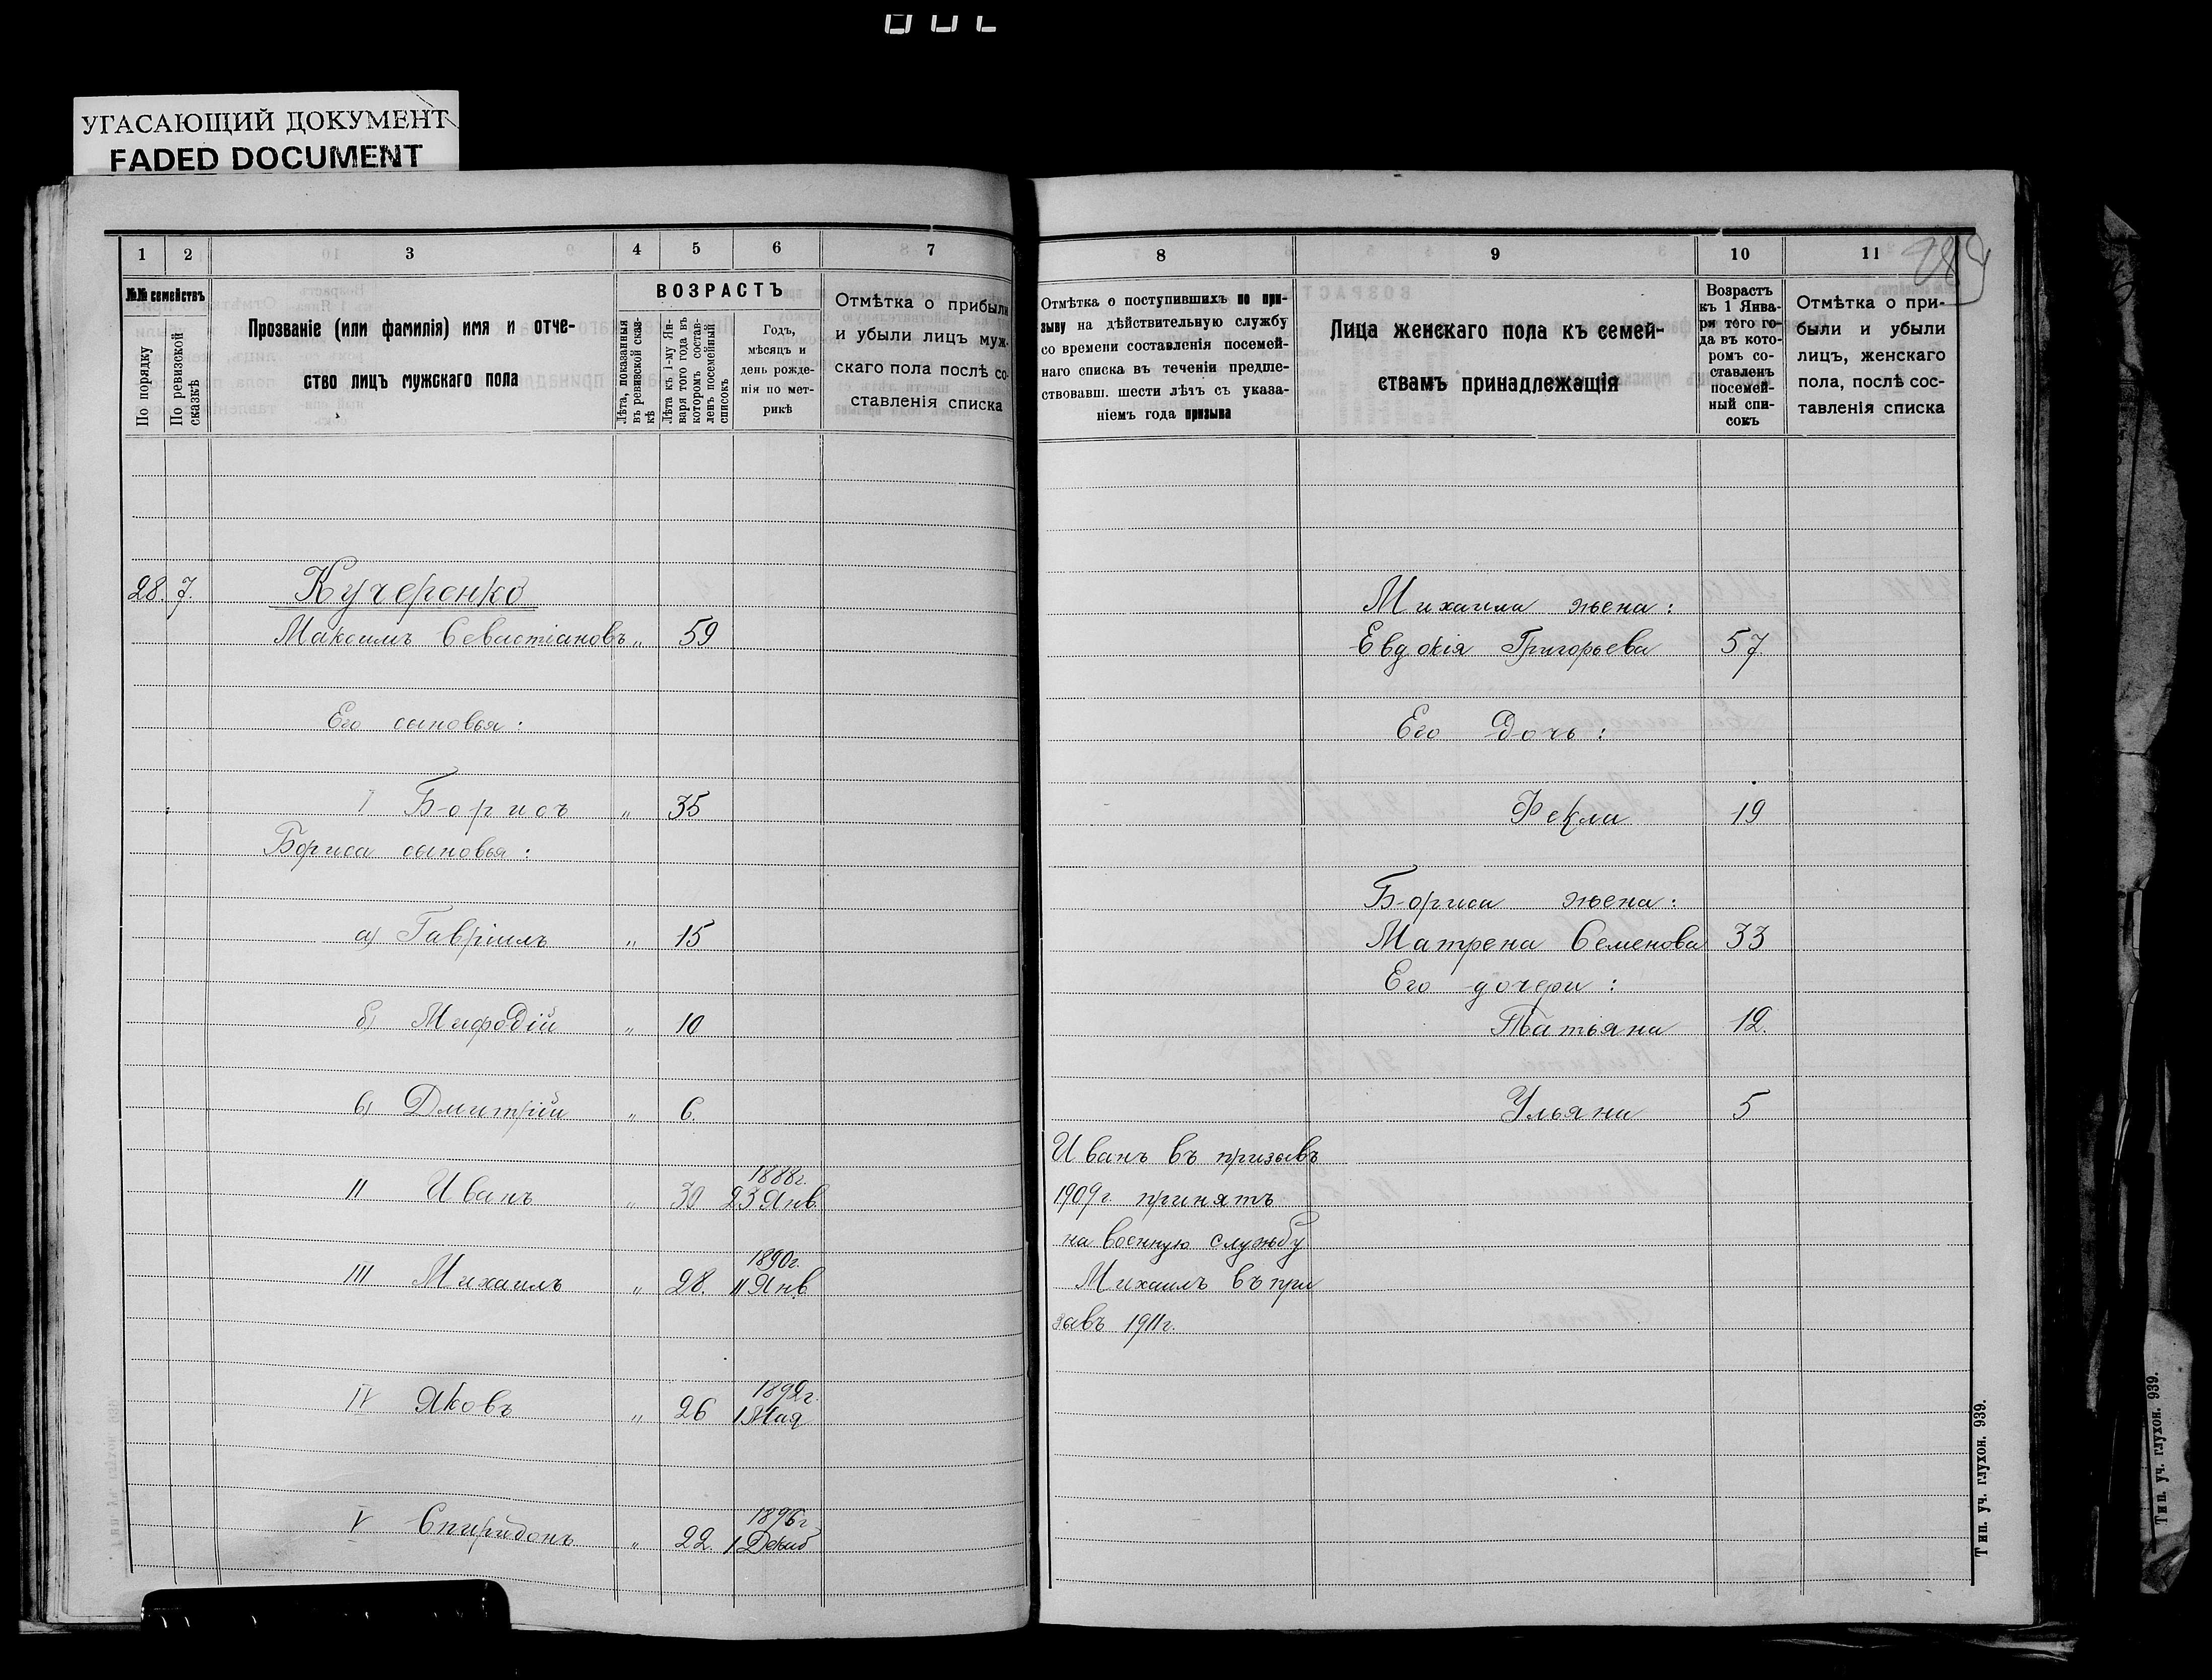 УГАСАЮЩИЙ ДОКУМЕНТ
FADED DOCUMENT
1 2 3 4 5 6 7
№№ семействъ
По порядку
По ревизской сказкѣ
Прозваніе (или фамилія) имя и отче-
ство лицъ мужскаго пола
ВОЗРАСТЪ
Лѣта, показанныя
въ ревизской сказ-
кѣ
Лѣта къ 1-му Ян-
варя того года въ
которомъ состав-
ленъ посемейный
списокъ
Годъ,
мѣсяцъ и
день рожде-
нія по мет-
рикѣ
Отмѣтка о прибыли
и убыли лицъ муж-
скаго пола послѣ со-
ставленія списка
28. 7. Кучеренко
Максимъ Севастіановъ „ 59
Его сыновья:
I Борисъ „ 35
Бориса сыновья:
а) Гавріилъ „ 15
б) Мифодій „ 10
в) Дмитрій „ 6.
1888г.
II Иванъ „ 30 23 Янв.
1890г.
III Михаилъ „ 28. 11 Янв.
1892г.
IV Яковъ „ 26 1 Мая
1896г
V Спиридонъ „ 22. 1 Декаб
8 9 10 11
Отмѣтка о поступившихъ по при-
зыву на дѣйствительную службу
со времени составленія посемей-
наго списка въ теченіи предше-
ствовавш. шести лѣтъ съ указа-
ніемъ года призыва
Лица женскаго пола къ семей-
ствамъ принадлежащія
Возрастъ
къ 1 Янва-
ря того го-
да въ кото-
ромъ со-
ставленъ
посемей-
ный спи-
сокъ
Отмѣтка о при-
были и убыли
лицъ, женскаго
пола, послѣ сос-
тавленія списка
Михаила жена:
Евдокія Григорьева 57.
Его Дочь:
Фекла 19
Бориса жена:
Матрена Семенова 33
Его дочери:
Татьяна 12.
Ульяна 5
Иванъ въ призывъ
1909г. принятъ
на военную службу
Михаилъ въ при
зывъ 1911г.
Тип. уч. глухон. 939.
Тип. уч. глухон. 939.